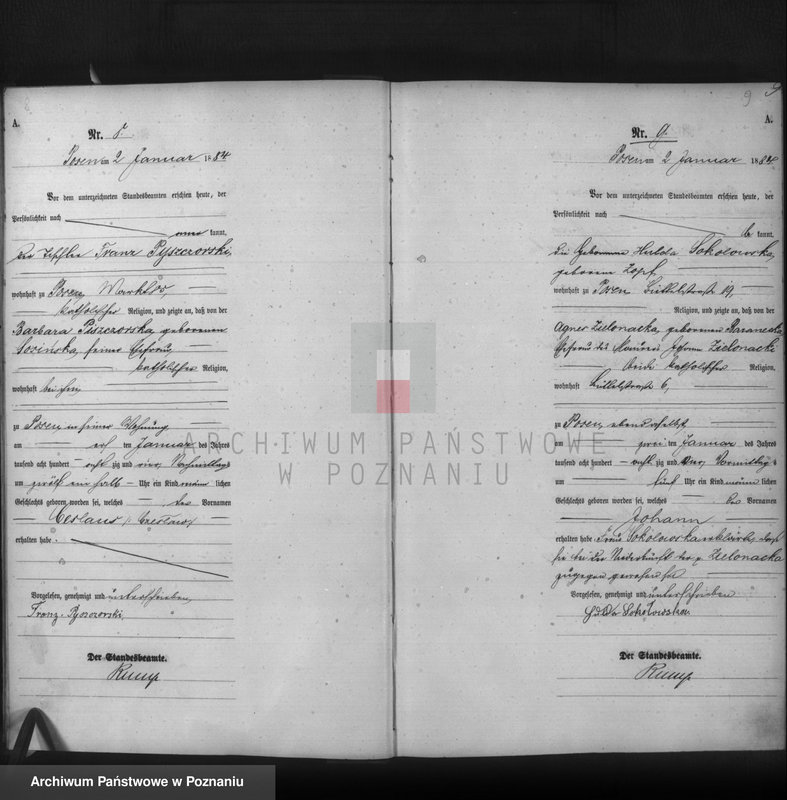 A.
Nr. 8.
Posen am 2 Januar 1884
Vor dem unterzeichneten Standesbeamten erschien heute, der
Persönlichkeit nach
kannt,
Franz Pyszczorski,
wohnhaft zu Posen,
katholischer Religion, und zeigte an, daß von der
Barbara Piszczorska, geborenen
Sosińska, seiner Ehefrau
katholischer Religion,
wohnhaft bei ihm
zu Posen in seiner Wohnung
am ten Januar des Jahres
tausend acht hundert acht zig und vier, Nachmittags
um ein halb Uhr ein Kind männ lichen
Geschlechts geboren worden sei, welches den Vornamen
erhalten habe.
Vorgelesen, genehmigt und unterschrieben,
Franz
Der Standesbeamte.
9
A.
Nr. 9.
Posen am 2 Januar 1884
Vor dem unterzeichneten Standesbeamten erschien heute, der
Persönlichkeit nach
be kannt,
die Hebamme Sokolowska,
geborene Zopf,
wohnhaft zu Posen 19,
Religion, und zeigte an, daß von der
Agnes Zielonacka, geborenen
Ehefrau des Maurers Johann Zielonacki
Beide katholischer Religion,
wohnhaft 6,
zu Posen, ebendaselbst
am zwei ten Januar des Jahres
tausend acht hundert acht zig und vier, Vormittags
um fünf Uhr ein Kind männ lichen
Geschlechts geboren worden sei, welches den Vornamen
Johann
erhalten habe. Frau Sokolowska erklärte, daß
sie bei der Niederkunft der p. Zielonacka
zugegen gewesen sei
Vorgelesen, genehmigt und unterschrieben
Sokołowska
Der Standesbeamte.
ARCHIWUM PAŃSTWOWE
W POZNANIU
Archiwum Państwowe w Poznaniu